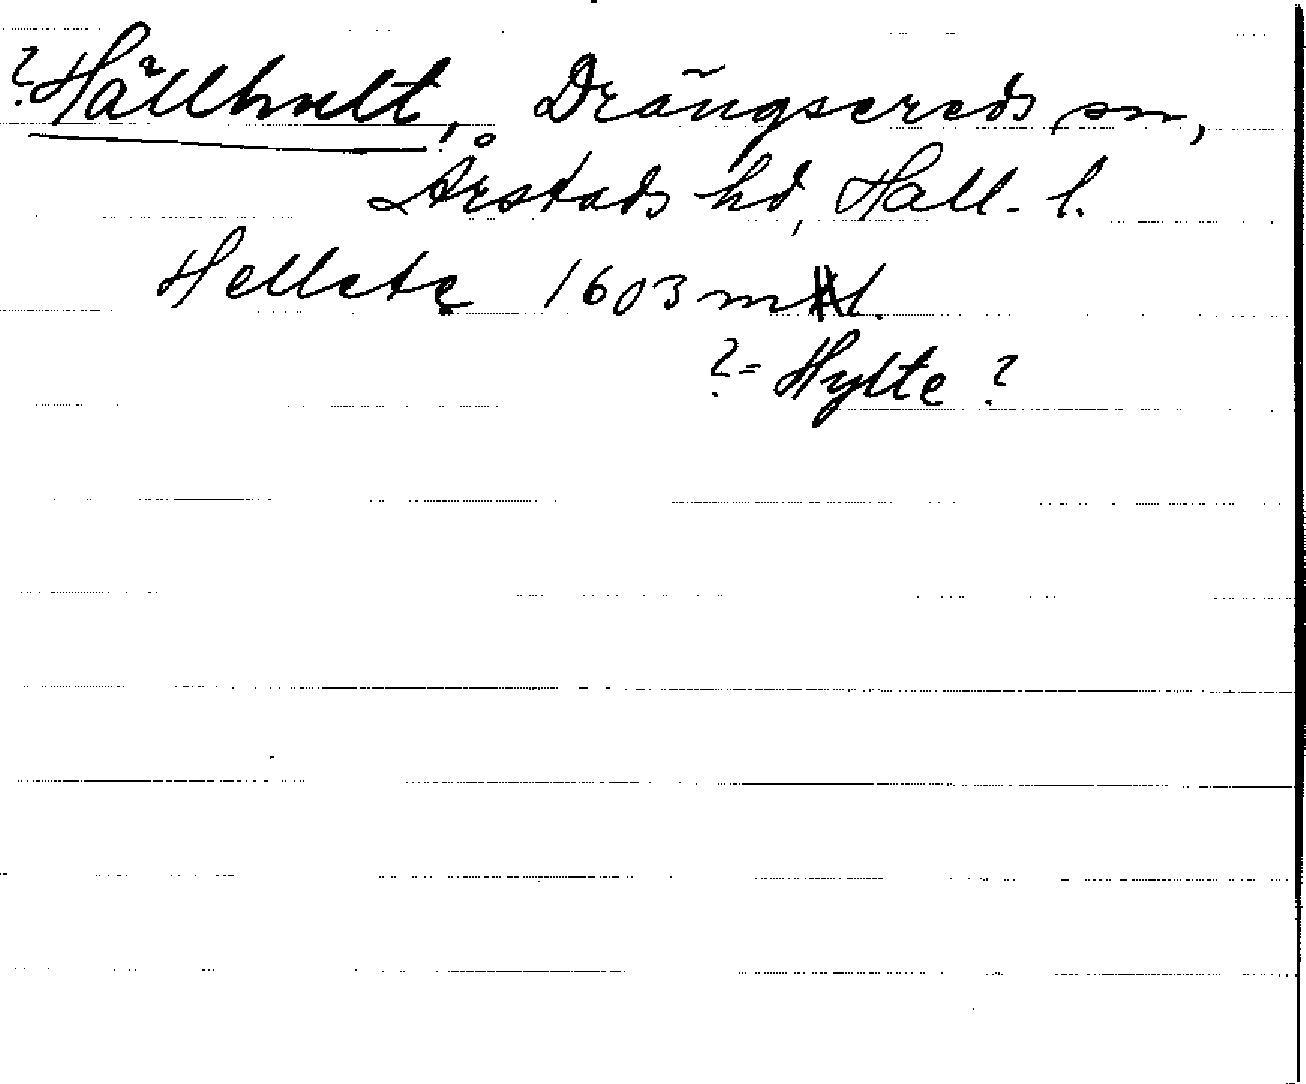 ?Hällhult, Drängsereds sn,
Årstads hd, Hall. l.
Hellete 1603 mtl.
?= Hylte ?